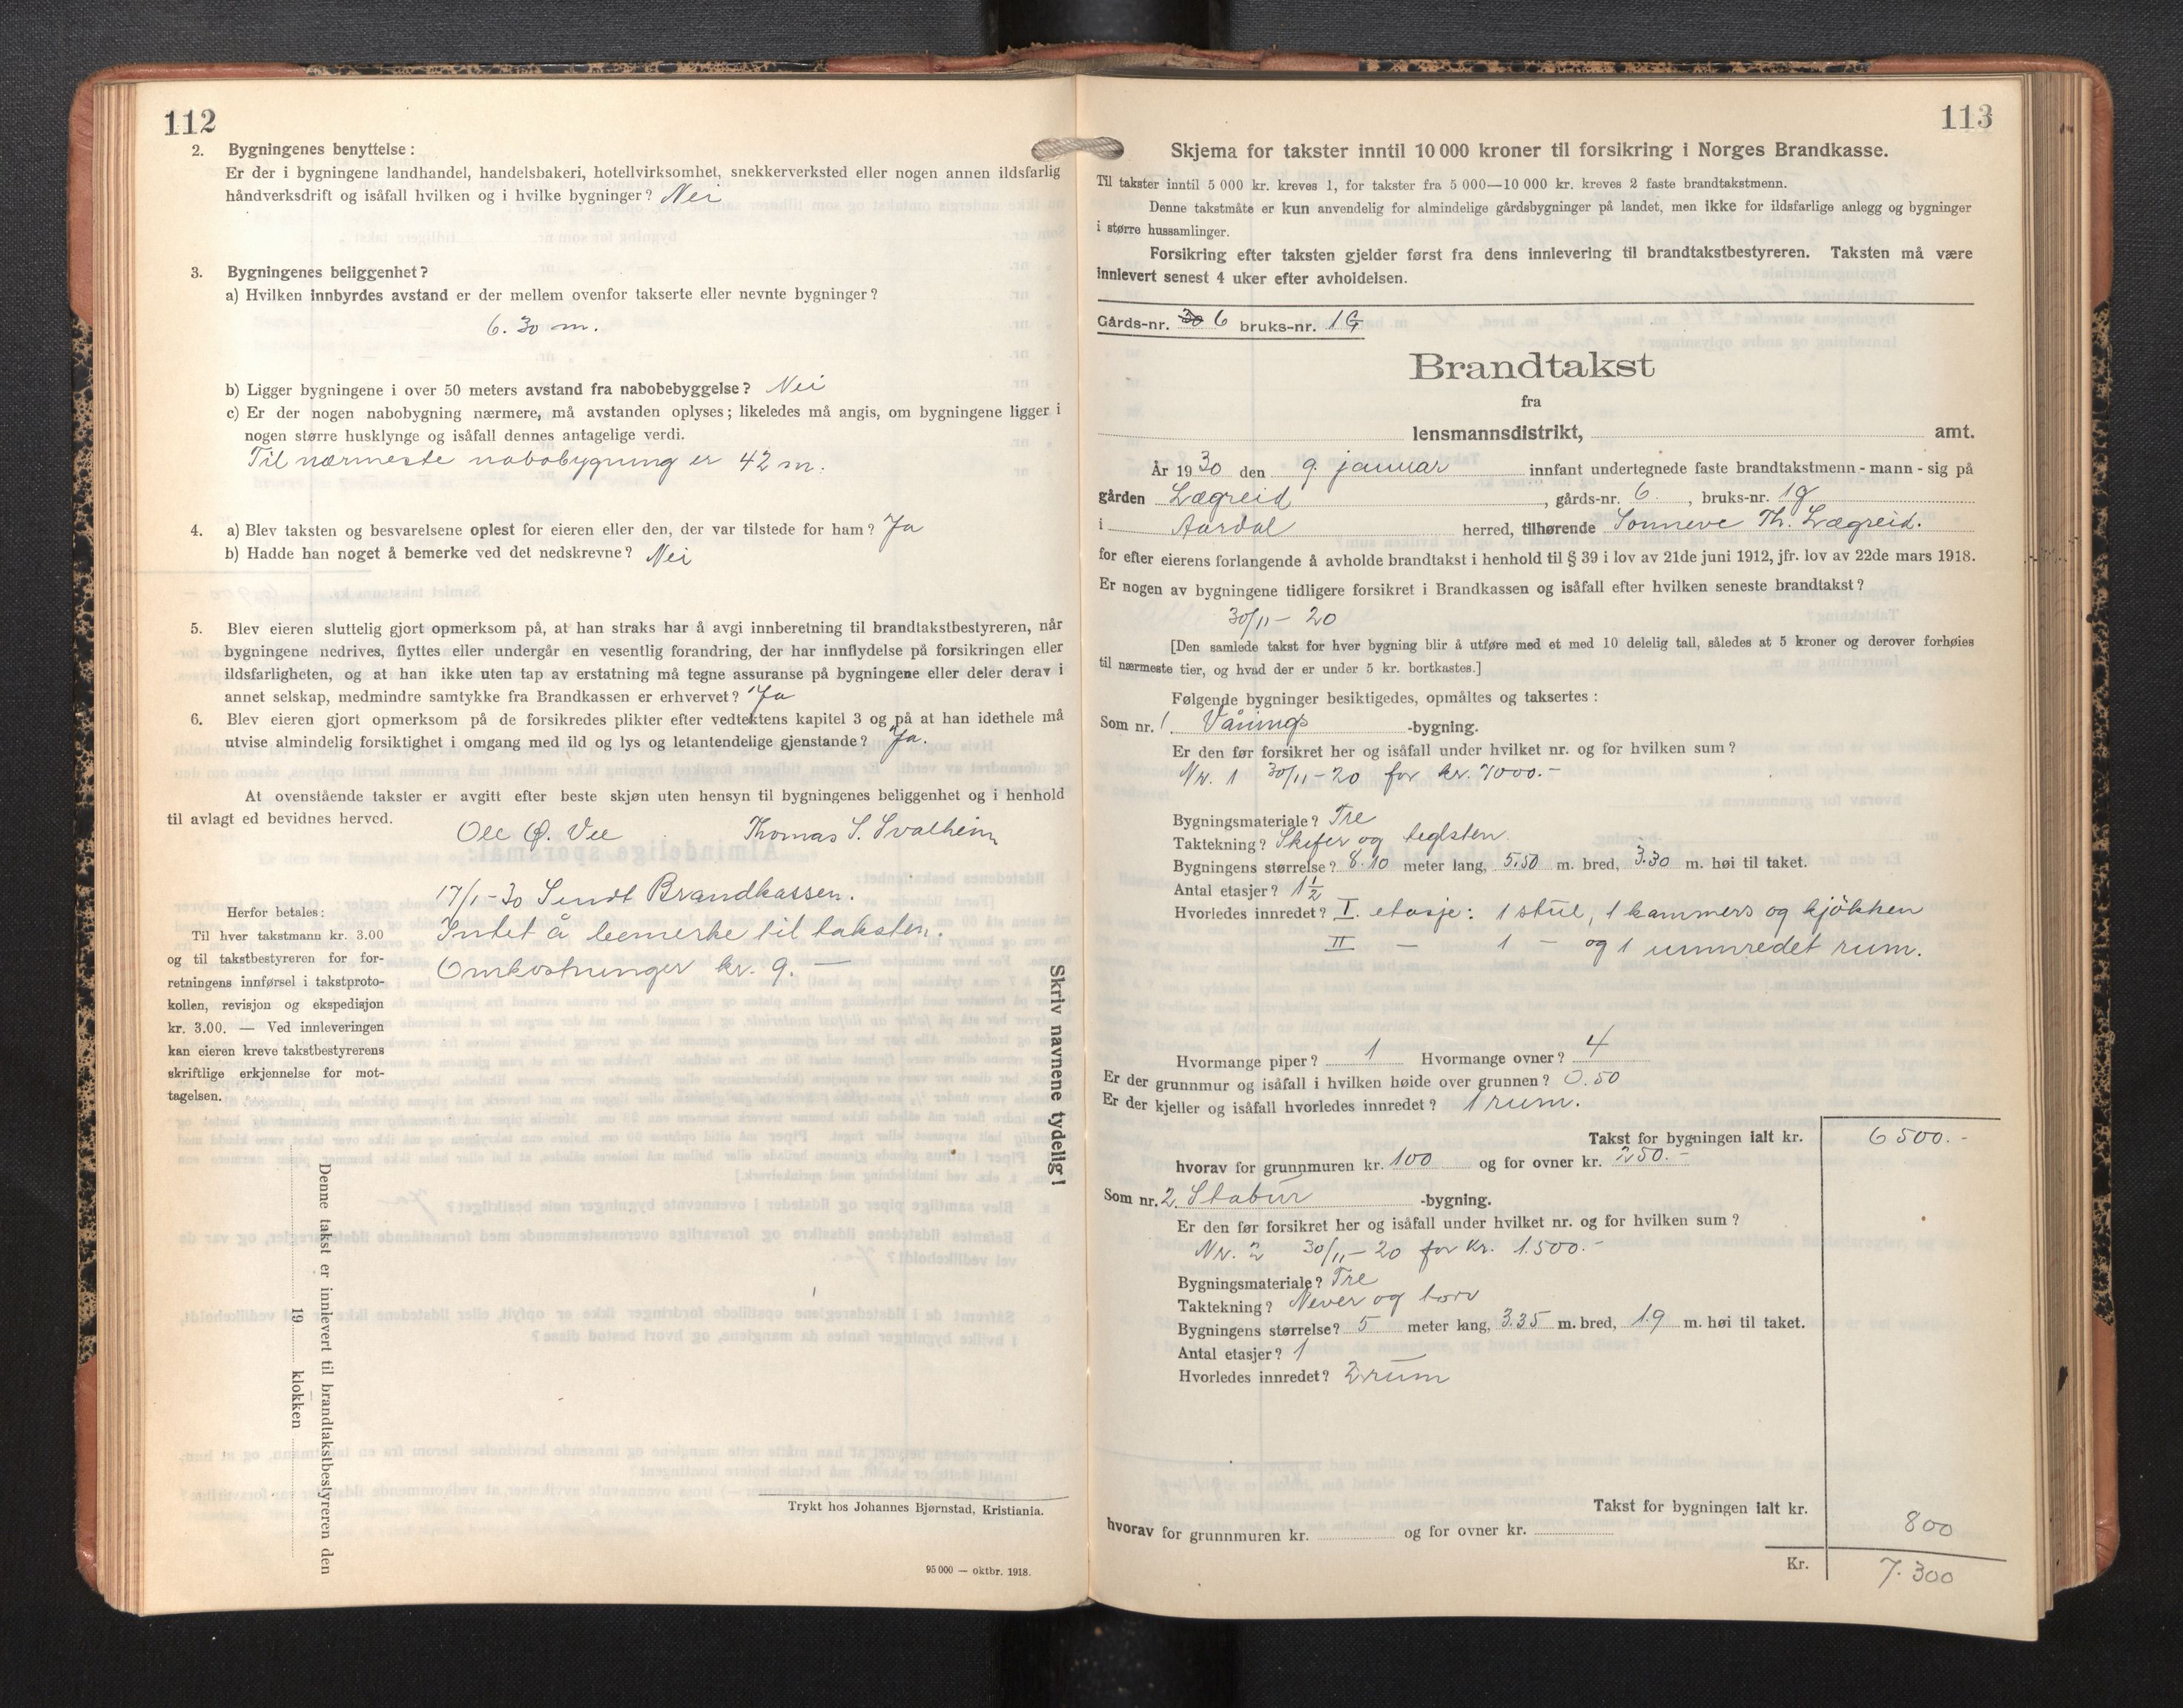 112
2. Bygningenes benyttelse:
Er der i bygningene landhandel, handelsbakeri, hotellvirksomhet, snekkerverksted eller nogen annen ildsfarlig
håndverksdrift og isåfall hvilken og i hvilke bygninger? Nei
3. Bygningenes beliggenhet?
a) Hvilken innbyrdes avstand er der mellem ovenfor takserte eller nevnte bygninger?
6.30 m.
b) Ligger bygningene i over 50 meters avstand fra nabobebyggelse? Nei
c) Er der nogen nabobygning nærmere, må avstanden oplyses; likeledes må angis, om bygningene ligger i
nogen større husklynge og isåfall dennes antagelige verdi.
Til nærmeste nabobygning er 42 m.
4. a) Blev taksten og besvarelsene oplest for eieren eller den, der var tilstede for ham? Ja
b) Hadde han noget å bemerke ved det nedskrevne? Nei
5. Blev eieren sluttelig gjort opmerksom på, at han straks har å avgi innberetning til brandtakstbestyreren, når
bygningene nedrives, flyttes eller undergår en vesentlig forandring, der har innflydelse på forsikringen eller
ildsfarligheten, og at han ikke uten tap av erstatning må tegne assuranse på bygningene eller deler derav i
annet selskap, medmindre samtykke fra Brandkassen er erhvervet? Ja
6. Blev eieren gjort opmerksom på de forsikredes plikter efter vedtektens kapitel 3 og på at han idethele må
utvise almindelig forsiktighet i omgang med ild og lys og letantendelige gjenstande? Ja.
At ovenstående takster er avgitt efter beste skjøn uten hensyn til bygningenes beliggenhet og i henhold
til avlagt ed bevidnes herved.
Ole Ø. Vee Thomas S. Svalheim
17/1-30 Sendt Brandkassen.
Intet å bemerke til taksten.
Omkostninger kr. 9. —
Herfor betales:
Til hver takstmann kr. 3.00
og til takstbestyreren for for-
retningens innførsel i takstproto-
kollen, revisjon og ekspedisjon
kr. 3.00. — Ved innleveringen
kan eieren kreve takstbestyrerens
skriftlige erkjennelse for mot-
tagelsen.
Skriv navnene tydelig!
Denne takst er innlevert til brandtakstbestyreren den
19 klokken
Trykt hos Johannes Bjørnstad, Kristiania.
95 000 — oktbr. 1918.
113
Skjema for takster inntil 10 000 kroner til forsikring i Norges Brandkasse.
Til takster inntil 5 000 kr. kreves 1, for takster fra 5 000—10 000 kr. kreves 2 faste brandtakstmenn.
Denne takstmåte er kun anvendelig for almindelige gårdsbygninger på landet, men ikke for ildsfarlige anlegg og bygninger
i større hussamlinger.
Forsikring efter taksten gjelder først fra dens innlevering til brandtakstbestyreren. Taksten må være
innlevert senest 4 uker efter avholdelsen.
Gårds-nr. 30 6 bruks-nr. 19
Brandtakst
fra
lensmannsdistrikt, amt.
År 1930 den 9. januar innfant undertegnede faste brandtakstmenn - mann - sig på
gården Lægreid, gårds-nr. 6, bruks-nr. 19
i Aardal herred, tilhørende Sonneve Th. Lægreid.
for efter eierens forlangende å avholde brandtakst i henhold til § 39 i lov av 21de juni 1912, jfr. lov av 22de mars 1918.
Er nogen av bygningene tidligere forsikret i Brandkassen og isåfall efter hvilken seneste brandtakst?
30/11 - 20
[Den samlede takst for hver bygning blir å utføre med et med 10 delelig tall, således at 5 kroner og derover forhøies
til nærmeste tier, og hvad der er under 5 kr. bortkastes.]
Følgende bygninger besiktigedes, opmåltes og taksertes:
Som nr. 1 Vånings -bygning.
Er den før forsikret her og isåfall under hvilket nr. og for hvilken sum?
Nr. 1 30/11 - 20 for kr. 7000.-
Bygningsmateriale? Tre
Taktekning? Skifer og teglsten.
Bygningens størrelse? 8.10 meter lang, 5.50 m. bred, 3.30 m. høi til taket.
Antal etasjer? 1 1/2
Hvorledes innredet? I. etasje: 1 stue, 1 kammers og kjökken
II — 1 — og 1 uinnredet rum.
Hvormange piper? 1 Hvormange ovner? 4
Er der grunnmur og isåfall i hvilken høide over grunnen? 0.50
Er der kjeller og isåfall hvorledes innredet? 1 rum.
Takst for bygningen ialt kr. 6500.-
hvorav for grunnmuren kr. 100 og for ovner kr. 250.-
Som nr. 2 Stabur -bygning.
Er den før forsikret her og isåfall under hvilket nr. og for hvilken sum?
Nr. 2 30/11 - 20 for kr. 1.500.-
Bygningsmateriale? Tre
Taktekning? Never og torv
Bygningens størrelse? 5 meter lang, 3.35 m. bred, 1.9 m. høi til taket.
Antal etasjer? 1
Hvorledes innredet? 2 rum
Takst for bygningen ialt kr. 800
hvorav for grunnmuren kr. og for ovner kr.
Kr. 7.300